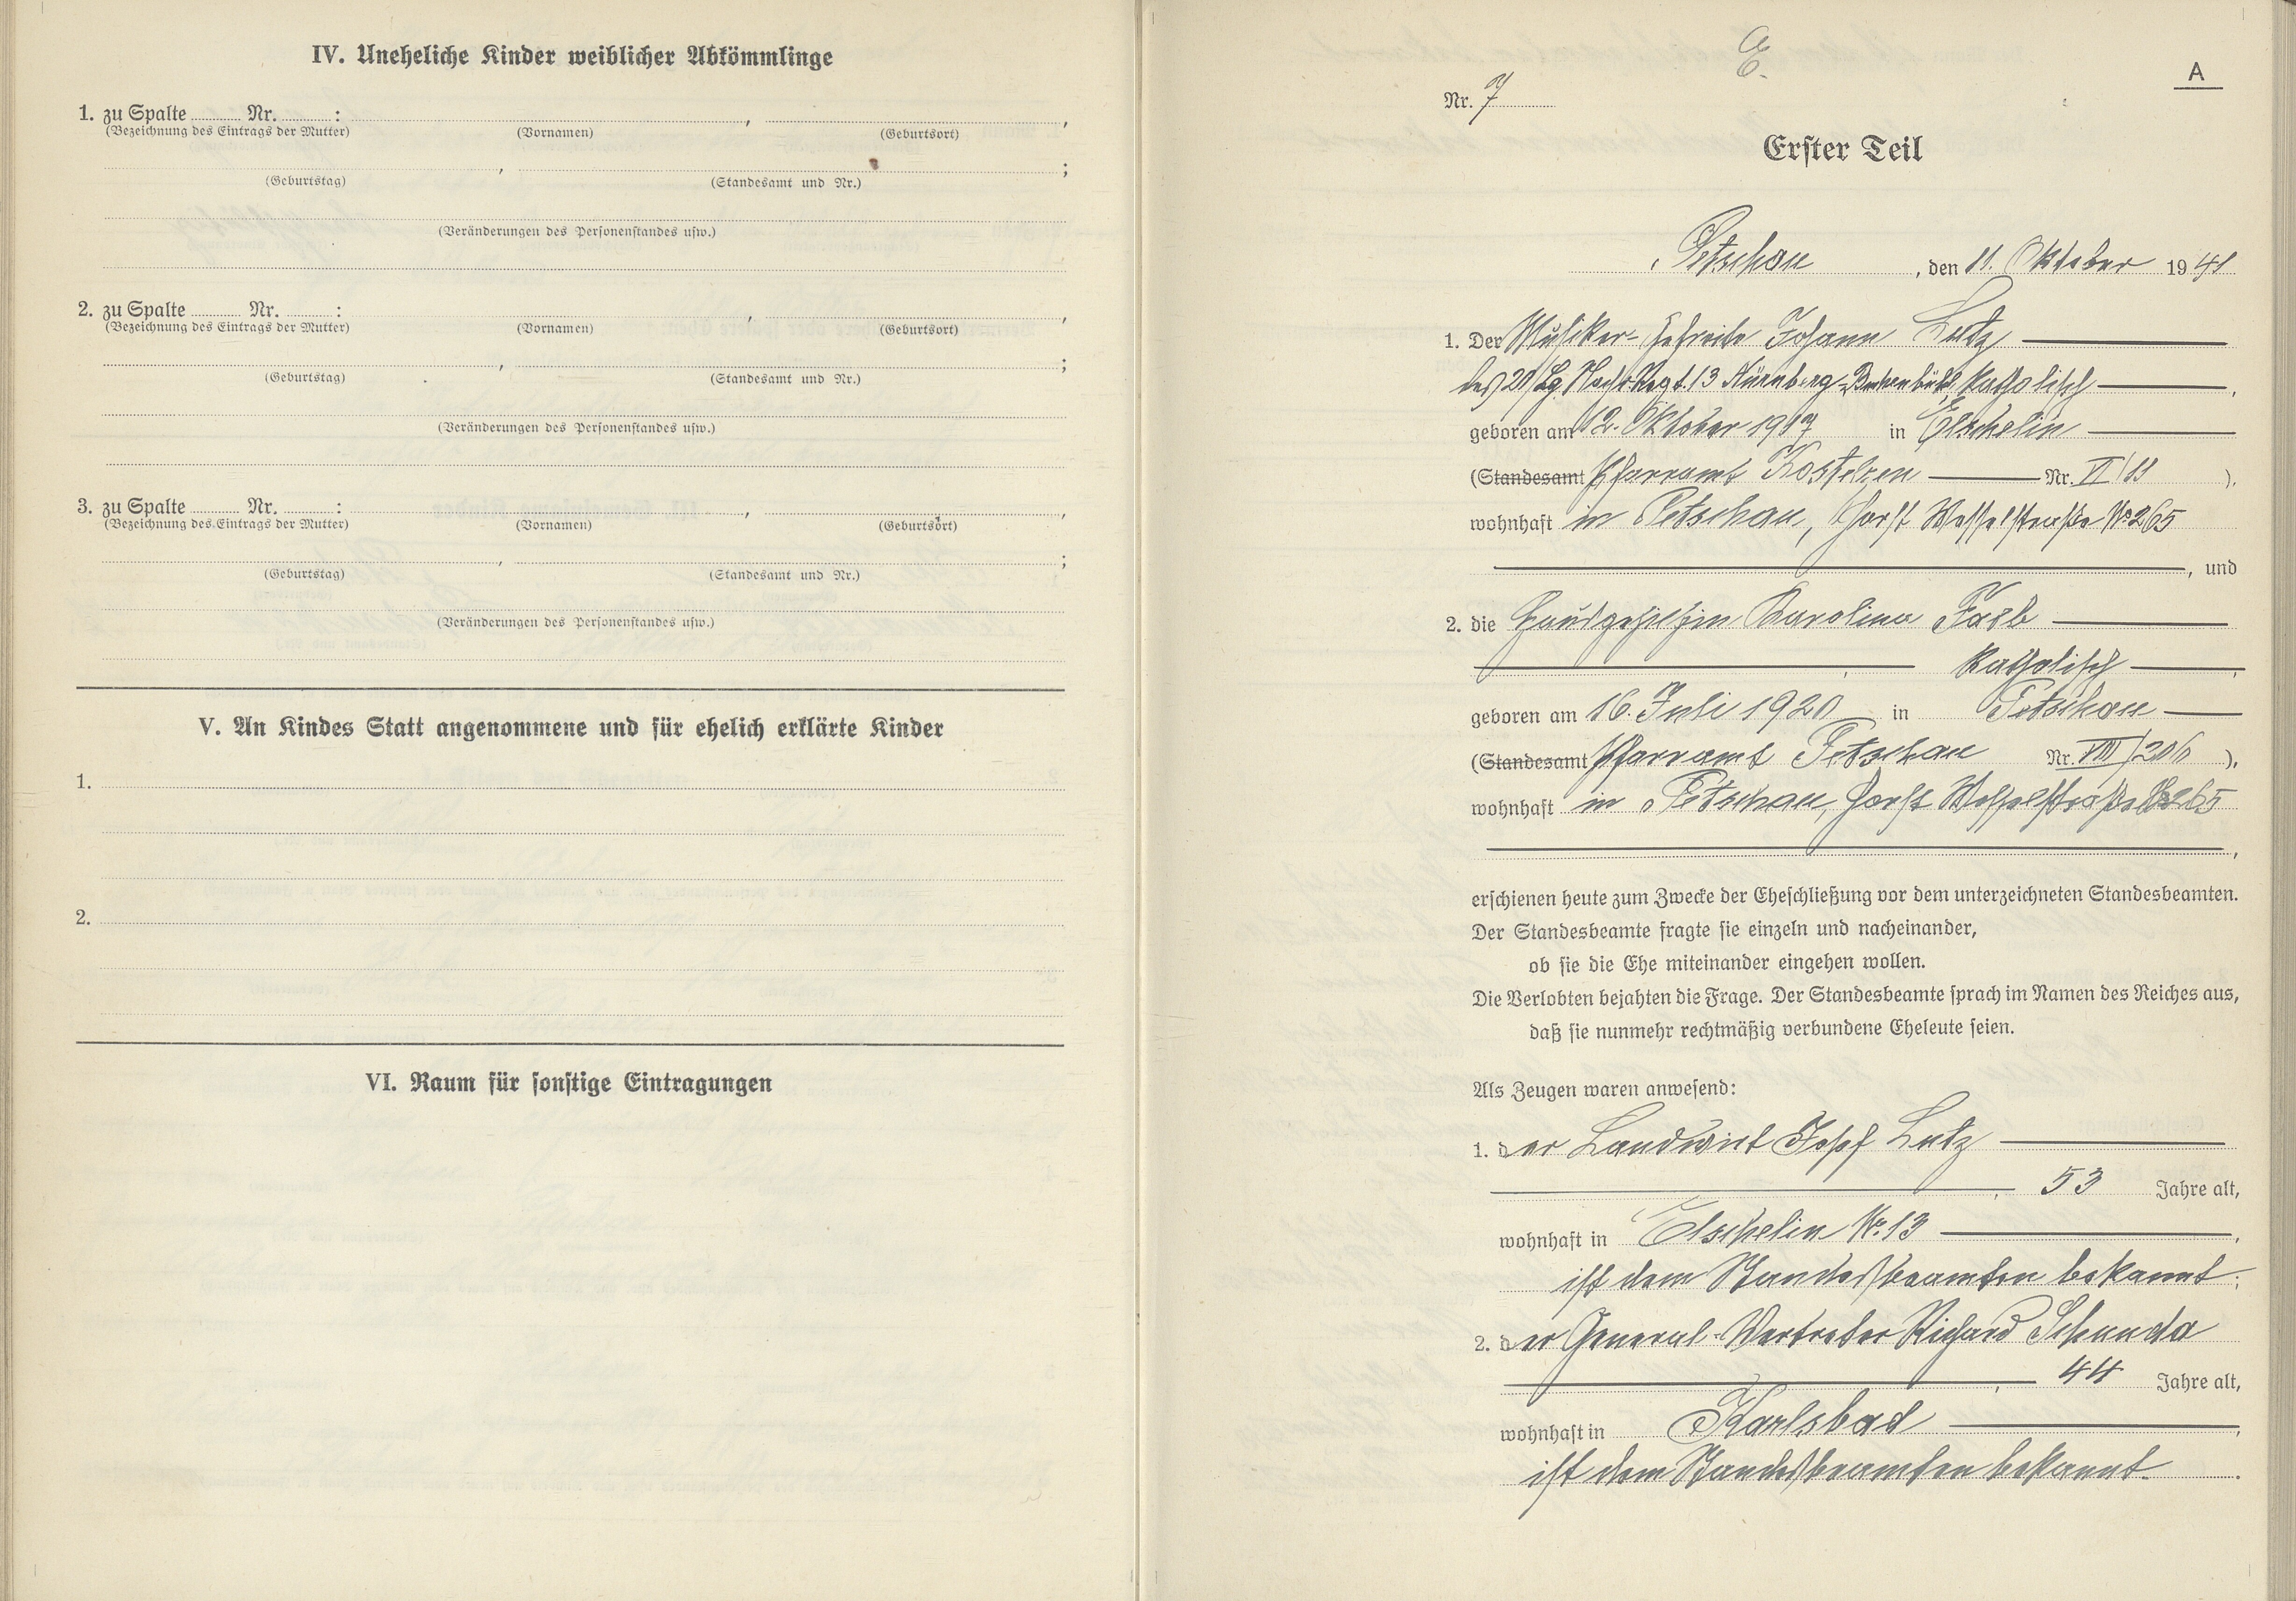 IV. Uneheliche Kinder weiblicher Abkömmlinge
1. zu Spalte ........ Nr. ........ :
(Bezeichnung des Eintrags der Mutter) (Vornamen) , (Geburtsort) ,
, ;
(Geburtstag) (Standesamt und Nr.)
(Veränderungen des Personenstandes usw.)
2. zu Spalte ........ Nr. ........ :
(Bezeichnung des Eintrags der Mutter) (Vornamen) , (Geburtsort) ,
, ;
(Geburtstag) (Standesamt und Nr.)
(Veränderungen des Personenstandes usw.)
3. zu Spalte ........ Nr. ........ :
(Bezeichnung des Eintrags der Mutter) (Vornamen) , (Geburtsort) ,
, ;
(Geburtstag) (Standesamt und Nr.)
(Veränderungen des Personenstandes usw.)
V. An Kindes Statt angenommene und für ehelich erklärte Kinder
1.
2.
VI. Raum für sonstige Eintragungen
E.
A
Nr. 7
Erster Teil
Petschau, den 11. Oktober 1941
1. Der Musiker-Gefreite Johann Lutz
des 21/Lg. Nachr. Regt. 13 Nürnberg- katholisch,
geboren am 12. Oktober 1917 in Elschelin
(Standesamt Pfarramt Kostelzen Nr. VI/11 ),
wohnhaft in Petschau, Horst Wesselstraße No 265
, und
2. die Hausgehilfin Karolina Fasb
katholisch,
geboren am 16. Juli 1920 in Petschau
(Standesamt Pfarramt Petschau Nr. VIII/206 ),
wohnhaft in Petschau, Horst Wesselstraße No 265
,
erschienen heute zum Zwecke der Eheschließung vor dem unterzeichneten Standesbeamten.
Der Standesbeamte fragte sie einzeln und nacheinander,
ob sie die Ehe miteinander eingehen wollen.
Die Verlobten bejahten die Frage. Der Standesbeamte sprach im Namen des Reiches aus,
daß sie nunmehr rechtmäßig verbundene Eheleute seien.
Als Zeugen waren anwesend:
1. der Landwirt Josef Lutz
, 53 Jahre alt,
wohnhaft in Elschelin No. 13,
ist dem Standesbeamten bekannt;
2. der General-Vertreter Richard Schunda
, 44 Jahre alt,
wohnhaft in Karlsbad,
ist dem Standesbeamten bekannt.